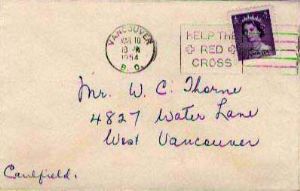 VANCOUVER
MAR 10
1954
B. C.
HELP THE
RED
CROSS
Mr. W. C. Thorne
4827 Water Lane
West Vancouver
Caulfield.